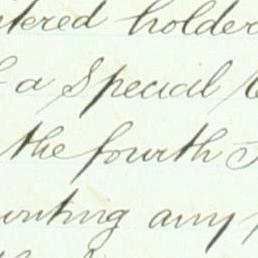 tered holder
a Special
the fourth
unting any